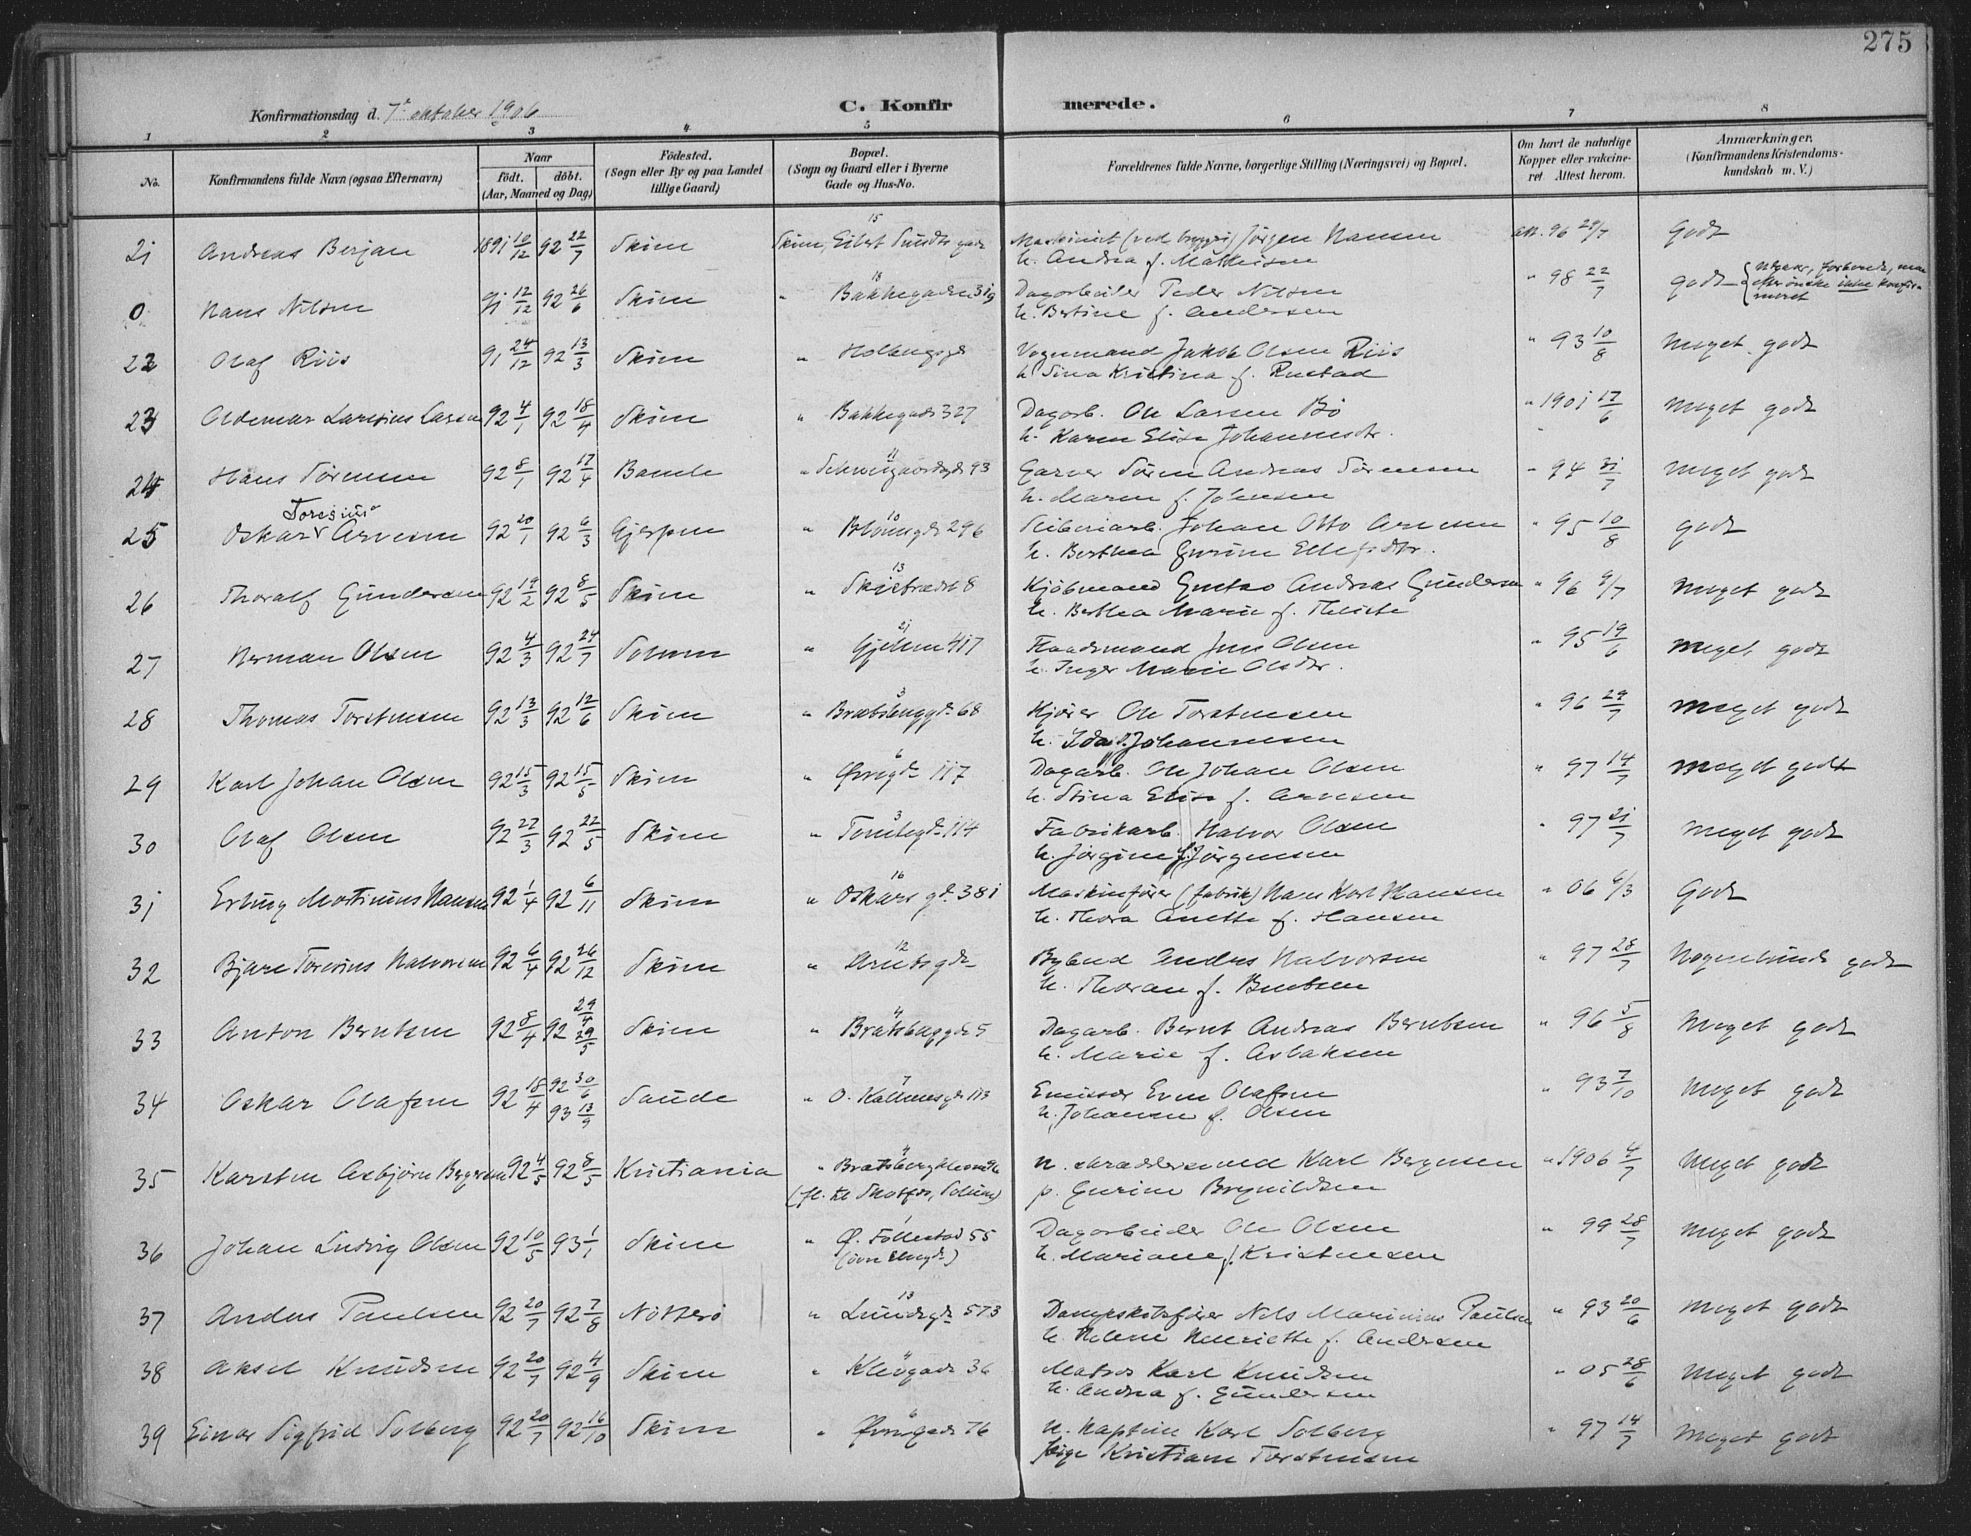 275
Konfirmationsdag d. 7de oktober 1906
C. Konfirmerede.
1 2 3 4 5 6 7 8
No. Konfirmandens fulde Navn (ogsaa Efternavn) Naar Födt. döbt. (Aar, Maaned og Dag) Födested. (Sogn eller By og paa Landet tillige Gaard) Bopæl. (Sogn og Gaard eller i Byerne Gade og Hus-No. Forældrenes fulde Navne, borgerlige Stilling (Næringsvei) og Bopæl. Om havt de naturlige Kopper eller vakcineret Attest herom. Anmærkninger. (Konfirmandens Kristendomskundskab m. V.)
21 Andreas Berjan 1891 10/12 92 22/7 Skien Skien, Eilert Sundts gade 15 Maskinist (ved bryggeri) Jörgen Hansen att. 96 29/7 Godt
h. Andrea f. Mathisen
0 Hans Nilsen 91 12/12 92 26/6 Skien " Bakkegaden 319 18 Dagarbeider Peder Nilsen " 98 22/7 godt
h. Bertine f. Andersen
22 Olaf Riis 91 24/12 92 13/3 Skien " Holbergsgt Vognmand Jakob Olsen Riis " 93 10/8 Meget godt
h. Sina Kristina f. Rustad
23 Oldemar Larsius Larsen 92 4/1 92 18/4 Skien " Bakkegade 327 Dagarb. Ole Larsen Bö " 1901 17/6 Meget godt
h. Karen Elise Johannesdr.
24 Hans Sörensen 92 8/1 92 17/4 Bamle " Schweigaardsgd 93 11 Garver Sören Andreas Sörensen " 94 31/7 Meget godt
h. Maren f. Johnsen
25 Oskar Toresius Arvesen 92 20/1 92 6/3 Gjerpen " 296 10 Johan Otto Arvesen " 95 10/8 godt
h. Berthea Gurine
26 Thoralf Gundersen 92 19/2 92 8/5 Skien " Skistrædet 8 13 Kjöbmand Gustav Andreas Gundersen " 96 9/7 Meget godt
h. Berthea Marie f. Thliste
27 Herman Olsen 92 4/3 92 24/7 Solum " Gjelsen 417 21 Jens Olsen " 95 19/6 Meget godt
h. Inger Marie Olsdr.
28 Thomas Torstensen 92 13/3 92 12/6 Skien " Bratsberggd. 68 3 Kjörer Ole Torstensen " 96 29/7 Meget godt
h. Ida f. Johannesen
29 Karl Johan Olsen 92 15/3 92 15/5 Skien " Övregd. 117 6 Dagarb. Ole Johan Olsen " 97 14/7 Meget godt
h. Stina Elise f. Arvesen
30 Olaf Olsen 92 22/3 92 22/5 Skien " Tomtegd. 114 3 Fabrikarb. Halvor Olsen " 97 21/7 Meget godt
h. Jörgine f. Jörgensen
31 Erling Martinius Hansen 92 1/4 92 6/11 Skien " Oskars gd. 381 16 Maskinförer (fabrik) Hans Karl Hansen " 06 6/3 Godt
h. Thora Anette f. Hansen
32 Bjarne Toresius Halvorsen 92 6/4 92 26/12 Skien " Arebsgd. 12 Bybud Anders Halvorsen " 97 28/7 Nogenlunde godt
h. Thoran f. Berntsen
33 Anton Berntsen 92 8/4 92 29/4 29/5 Skien " Bratsberggd. 5 4 Dagarb. Bernt Andreas Berntsen " 96 5/8 Meget godt
h. Marie f. Aslaksen
34 Oskar Olafsen 92 18/4 92 30/6 93 13/9 Saude " O. Kallnesgd. 113 7 Emissær Even Olafsen " 93 7/10 Meget godt
h. Johanne f. Olsen
35 Karsten Asbjörn Bergersen 92 4/5 92 8/5 Kristiania " Bratsbergkleven 4 (fl. til Skotfos, Solum) u. skræddersvend Karl Bergersen " 1906 4/7 Meget godt
p. Gurine Brynildsen
36 Johan Ludvig Olsen 92 10/5 93 1/1 Skien " Ö. Föllestad 55 1 Dagarbeider Ole Olsen " 99 28/7 Meget godt
h. Mariane f. Kristensen
37 Anders Paulsen 92 20/7 92 7/8 Nötterö " Lundegd. 573 13 Dampskibsförer Nils Marinius Paulsen " 93 20/6 Meget godt
h. Helene Henriette f. Andersen
38 Aksel Knudsen 92 20/7 92 4/9 Skien " Klevgade 36 Matros Karl Knudsen " 05 28/6 Meget godt
h. Andrea f. Gundersen
39 Einar Sigfrid Solberg 92 20/7 92 16/10 Skien " Övregade 76 6 u. Kaptein Karl Solberg " 97 14/7 Meget godt
pige Kristiane Torstensen